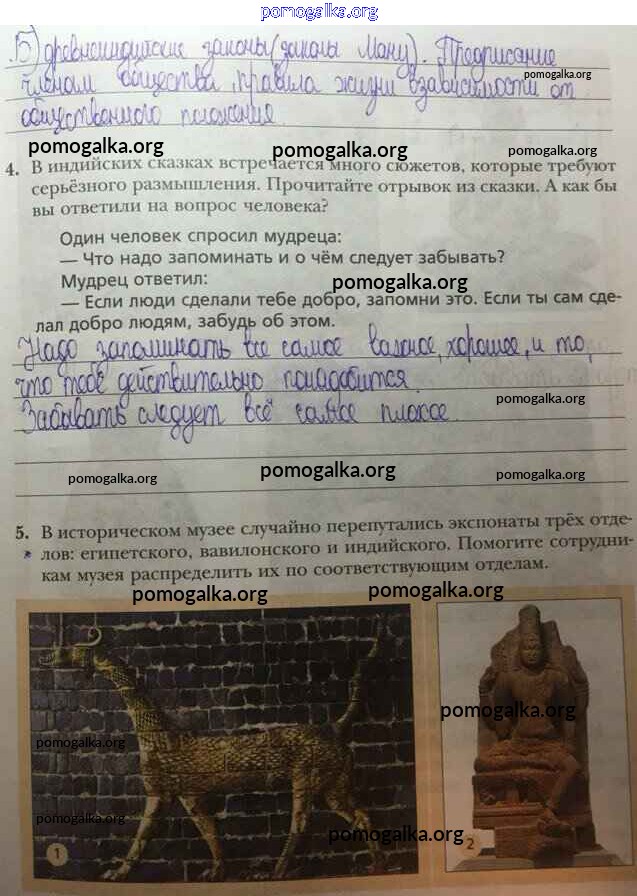 pomogalka.org
Б) древнеиндийские законы (законы Ману). Предписание
pomogalka.org
членам общества правила жизни в зависимости от
общественного положения
pomogalka.org pomogalka.org pomogalka.org
4. В индийских сказках встречается много сюжетов, которые требуют
серьёзного размышления. Прочитайте отрывок из сказки. А как бы
вы ответили на вопрос человека?
Один человек спросил мудреца:
— Что надо запоминать и о чём следует забывать?
Мудрец ответил:
pomogalka.org
— Если люди сделали тебе добро, запомни это. Если ты сам сде-
лал добро людям, забудь об этом.
Надо запоминать все самое важное, хорошее, и то,
что тебе действительно понадобится.
pomogalka.org
Забывать следует всё самое плохое.
pomogalka.org pomogalka.org pomogalka.org
5. В историческом музее случайно перепутались экспонаты трёх отде-
* лов: египетского, вавилонского и индийского. Помогите сотрудни-
кам музея распределить их по соответствующим отделам.
pomogalka.org pomogalka.org
pomogalka.org
pomogalka.org
pomogalka.org
pomogalka.org
1
2